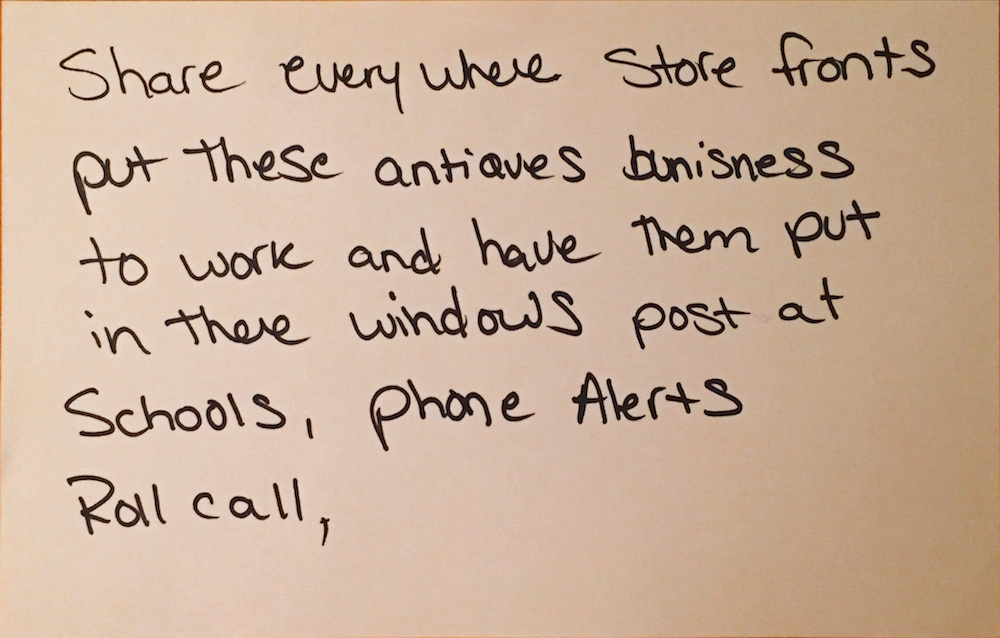 Share every where Store fronts
put These antiaves bunisness
to work and have Them put
in there windows post at
Schools, phone Alerts
Roll call,